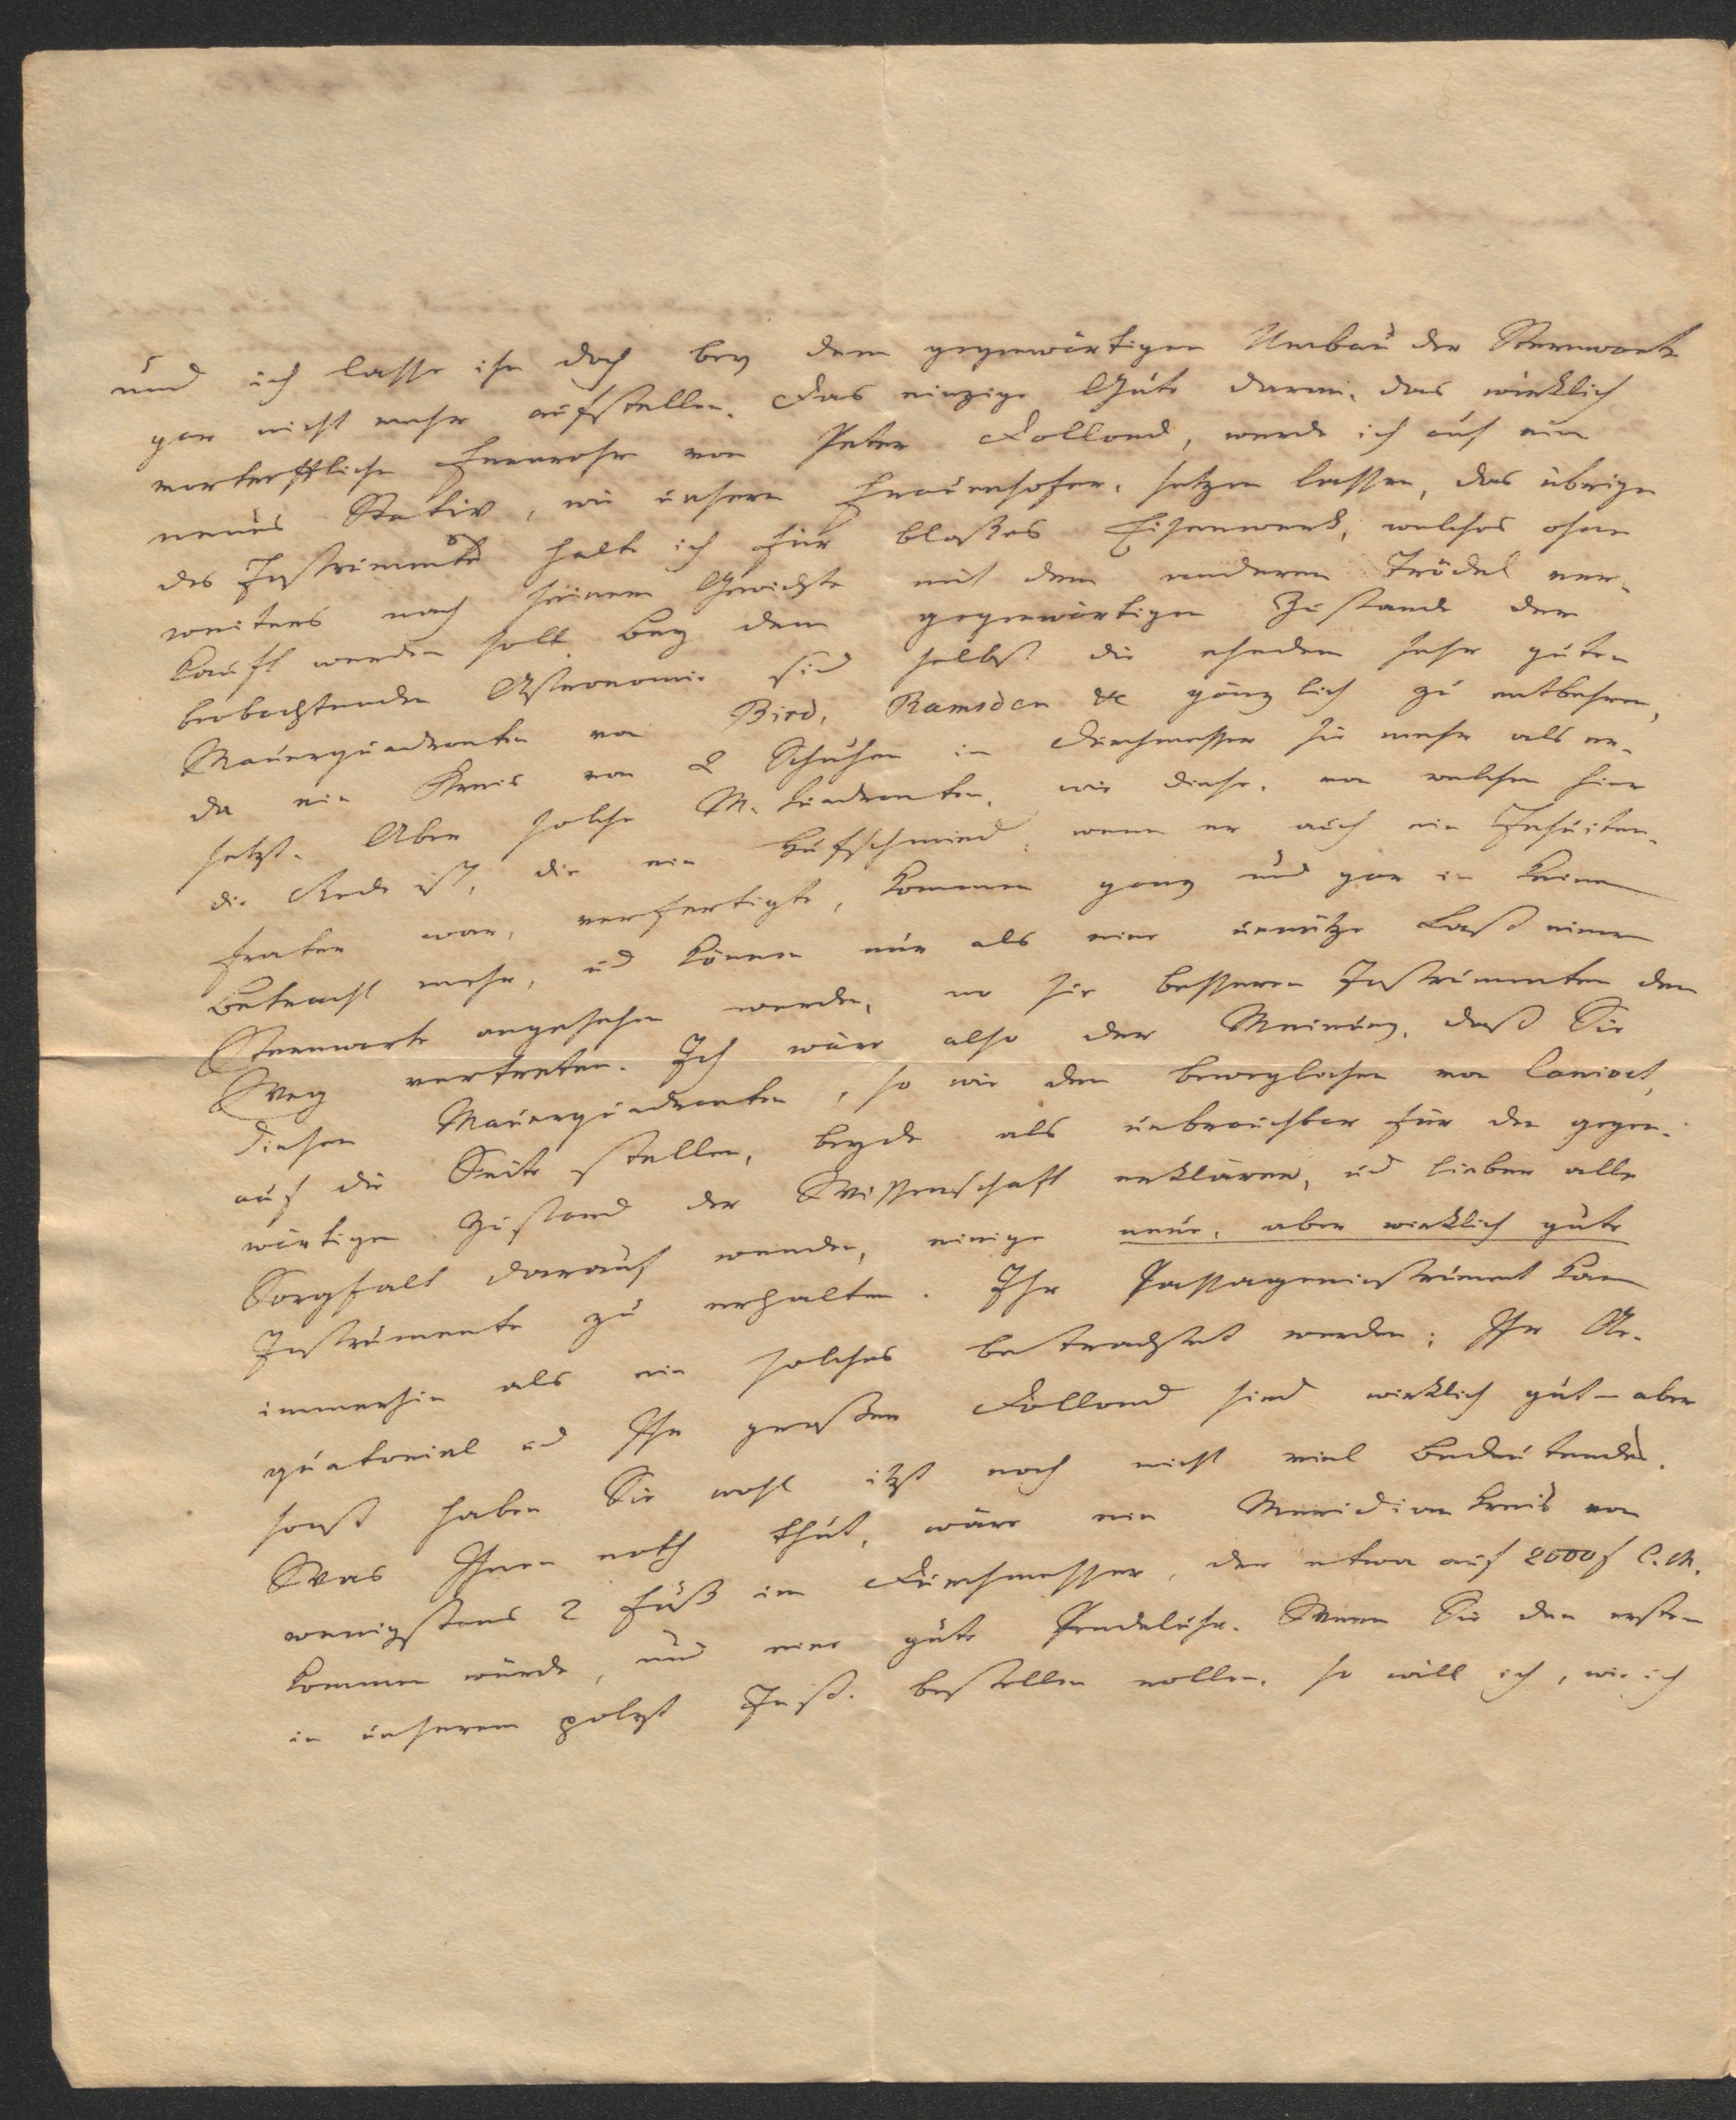 und ich lasse ihn doch bey dem gegenwärtigen Umbau der Sternwarte
gar nicht mehr aufstellen. Das einzige Gute daran, das wirklich
vortreffliche Fernrohr von Peter Dollond, werde ich auf ein
neues Stativ, wie unsern Frauenhofer, setzen lassen, das übrige
des Instruments halte ich für bloßes Eisenwerk, welches ohne
weiters nach seinem Gewichte mit dem anderen Trödel ver-
kauft werden soll. Bey dem gegenwärtigen Zustande der
beobachtenden Astronomie sind selbst die ehedem sehr guten
Mauerquadranten von Bird, Ramsden &c gänzlich zu entbehren,
da ein Kreis von 2 Schuhen im Durchmesser sie mehr als er-
setzt. Aber solche M. Quadranten, wie diese, von welchen hier
die Rede ist, die ein Hufschmied, wenn er auch ein Jesuiten-
frater war, verfertigte, kommen ganz und gar in keinen
Betracht mehr, und können nur als eine unnütze Last einer
Sternwarte angesehen werden, wo sie besseren Instrumenten den
Weg vertreten. Ich wäre also der Meinung, daß Sie
diesen Mauerquadranten, so wie den beweglichen von Canivet,
auf die Seite stellen, beyde als unbrauchbar für den gegen-
wärtigen Zustand der Wissenschaft erklären, und lieber alle
Sorgfalt darauf wenden, einige neue, aber wirklich gute
Instrumente zu erhalten. Ihr Passageninstrument kann
immerhin als ein solches betrachtet werden; Ihr Ae-
quatorial und Ihr großer Dollond sind wirklich gut – aber
sonst haben Sie wohl itzt noch nicht viel Bedeutendes.
Was Ihnen noth thut, wäre ein Meridiankreis von
wenigstens 2 Fuß im Durchmesser, der etwa auf 2000 f C.M.
kommen würde, und eine gute Pendeluhr. Wenn Sie den ersten
in unserem polyt. Inst. bestellen wollen, so will ich, wie ich